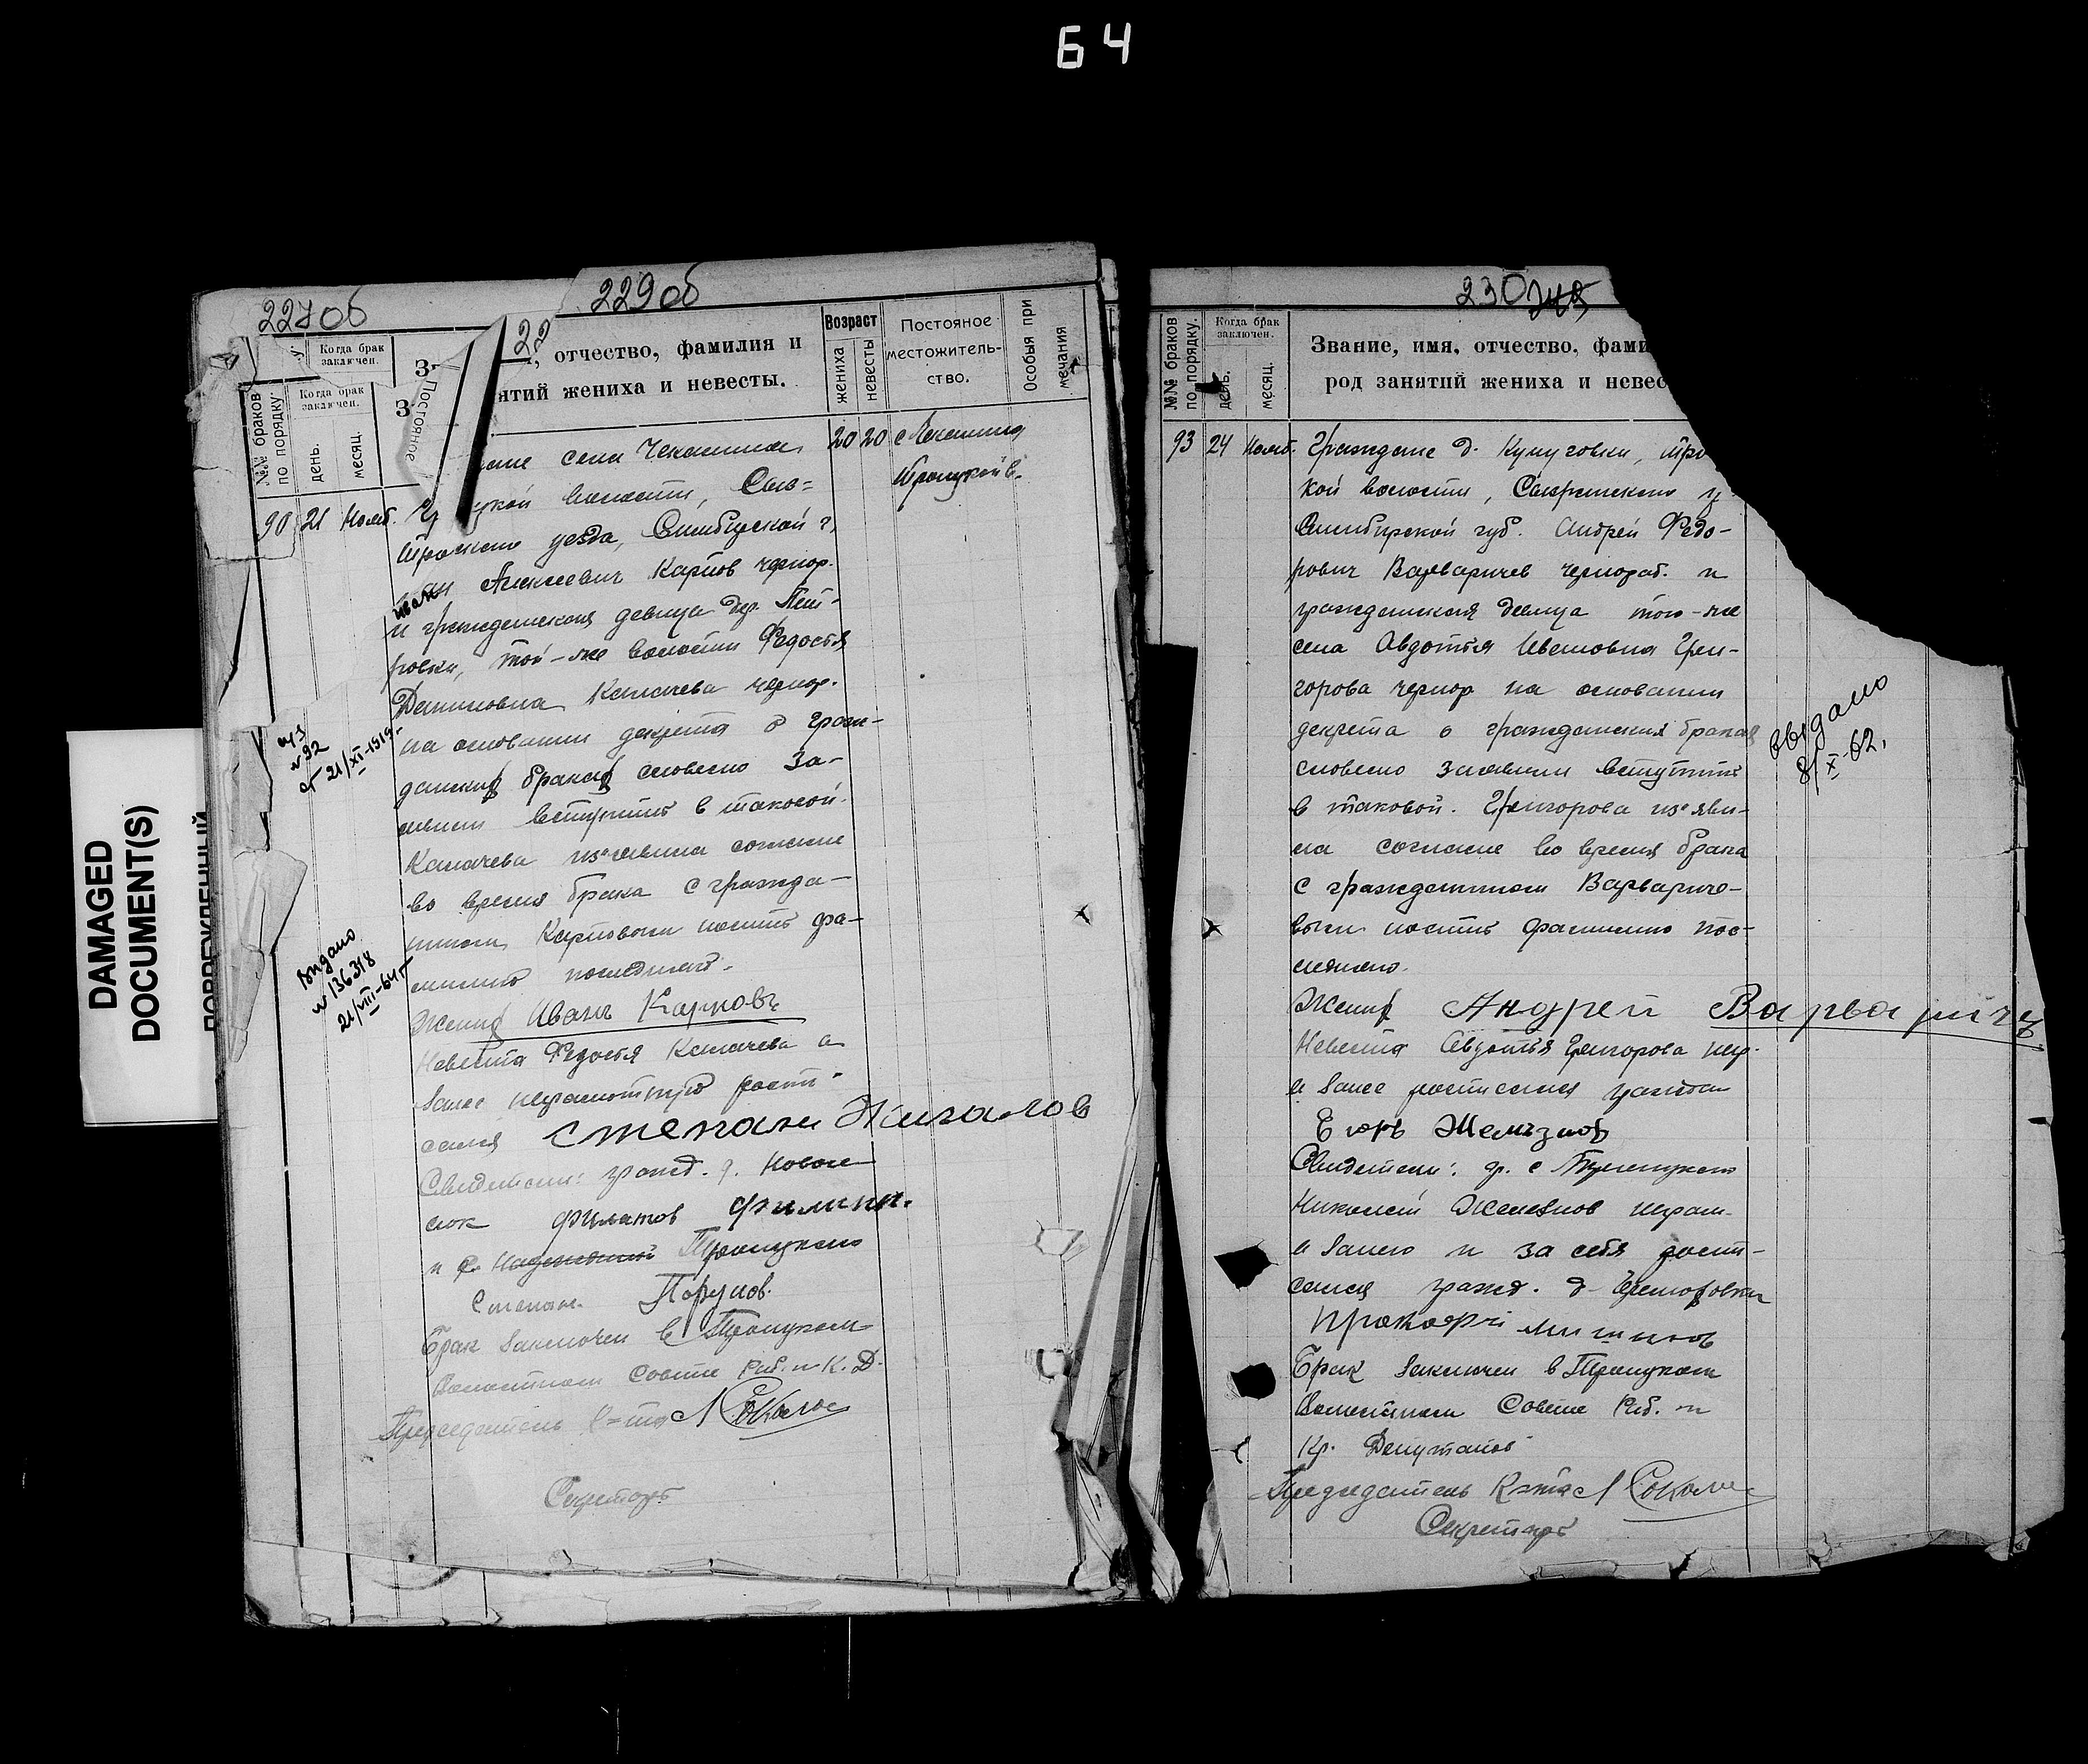 64
DAMAGED
DOCUMENT(S)
227об
229об
22
Когда брак
заключен.
№№ браков
по порядку.
Когда брак
заключен.
день.
месяц.
Постоянное
отчество, фамилия и
ятий жениха и невесты.
Возраст
жениха
невесты
Постояное
местожитель-
ство.
Особыя при
мечания
90 21 Нояб.
20 20
Троицкой в.
села
волости, Сыз=
уезда, Симбирской г.
Иван Алексеевич Карпов чернор.
и гражданская девица дер. Пет-
ровки, той-же волости Федостя
Даниловна Калачева чернор.
на основании декрета о граж-
данских браках словесно за-
вступить в таковой.
Калачева из'явила согласие
во время брака с гражда-
нином Карповым носить фа-
милию последняго.
Жених Иванъ Карповъ
Невеста Федостя Калачева а
за нее неграмотную распи-
сался Степан Жигалов
Свидетели: гражд. д. Новосе
лок Филатов Филипп.
и с. Троицкаго
Степан
Брак заключен в Троицком
Волостном Совете Раб. и К. Д.
Председатель К=та
Секретарь
ауз
№ 92
от 21/XI-1919
Выдано
№ 136318
21/VIII-64г.
230
№№ браков
по порядку.
Когда брак
заключен.
день.
месяц.
Звание, имя, отчество, фами
род занятий жениха и невес
93 24 Нояб. Граждане д.
кой волости, Сызранскаго у.
Симбирской губ. Андрей Федо-
рович Варваричев чернораб. и
гражданская девица того-же
села Авдотья Ивановна Гри-
горова чернор на основании
декрета о гражданских браках
словесно заявили вступить
в таковой. Григорова из'яви-
ла согласие во время брака
с гражданином Варвариче-
вым носить фамилию пос-
ледняго.
Жених Андрей Варваричев
Невеста Авдотья Григорова нег.
а за нее расписался гражда
Егоръ Желѣзновъ
Свидетели: гр. с
Николай Железнов неграм.
а за него и за себя распи-
сался гражд. д.
Прокофӣ
Брак заключен в Троицком
Волостном Совете Раб. и
Кр. Депутатов
Председатель К-та
Секретарь
выдано
8/X-62.